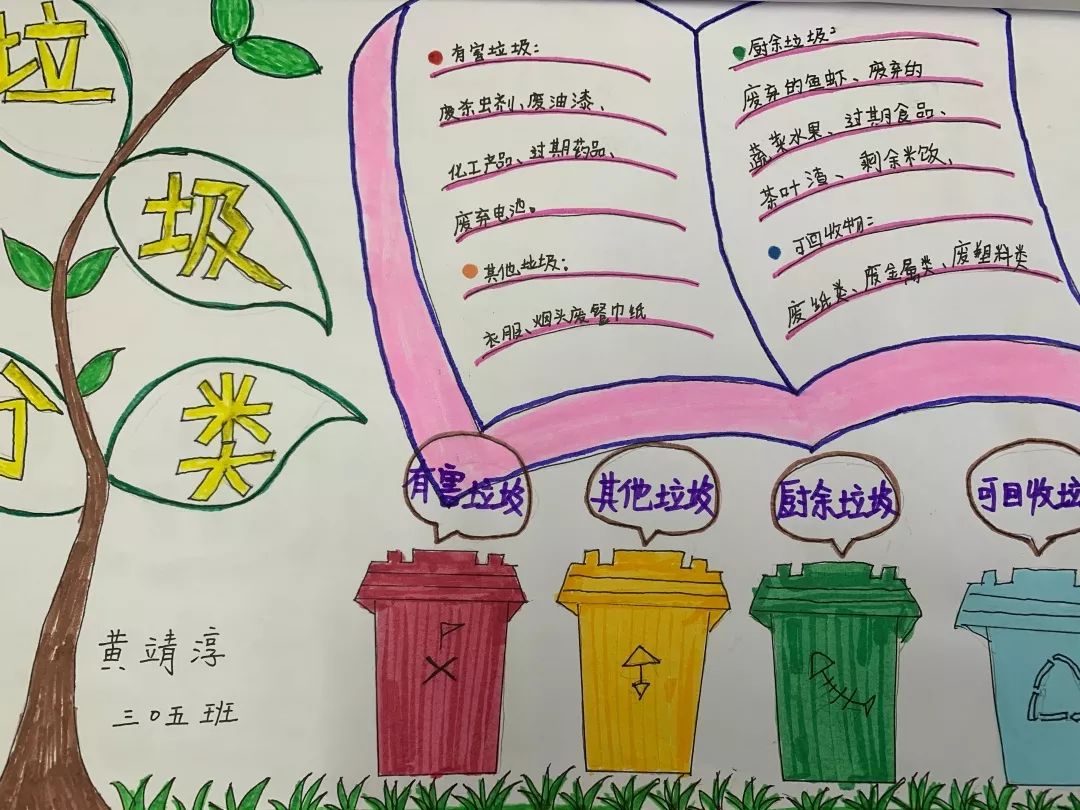 垃
圾
分
类
有害垃圾：
废杀虫剂、废油漆、
化工产品、过期药品、
废弃电池。
其他垃圾：
衣服、烟头废餐巾纸
厨余垃圾：
废弃的鱼虾、废弃的
蔬菜水果、过期食品、
茶叶渣、剩余米饭、
可回收物：
废纸类、废金属类、废塑料类
有害垃圾
其他垃圾
厨余垃圾
可回收垃
黄靖淳
三0五班